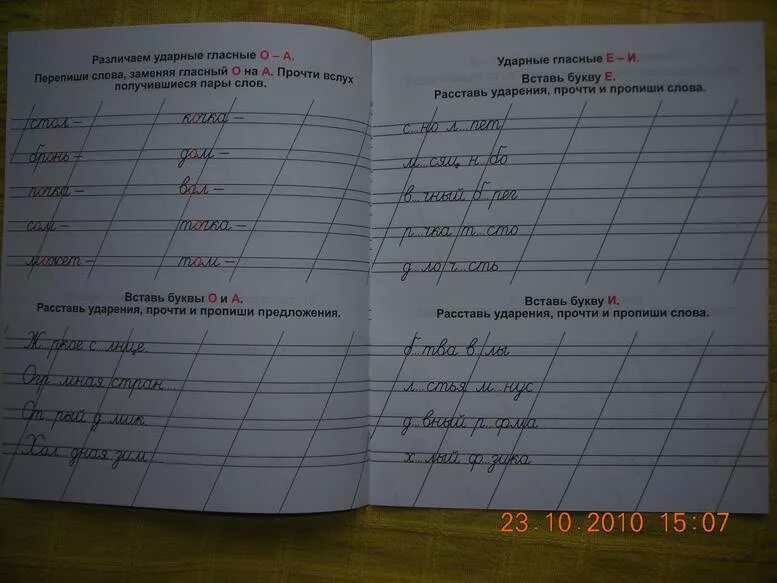 Различаем ударные гласные О – А.
Перепиши слова, заменяя гласный О на А. Прочти вслух
получившиеся пары слов.
стол –  кочка –
бронь –  дом –
почка –  вол –
сом –  точка –
может –  том –
Вставь буквы О и А.
Расставь ударения, прочти и пропиши предложения.
Ж...ркое с...лнце.
Огр...мная стран...
Ст...рый д...мик.
Хол...дная зим...
Ударные гласные Е – И.
Вставь букву Е.
Расставь ударения, прочти и пропиши слова.
с...но л...пет
м...сяц н...бо
в...чный б...рег
р...чка т...сто
д...ло ч...сть
Вставь букву И.
Расставь ударения, прочти и пропиши слова.
б...тва в...лы
л...стья м...нус
д...вный р...фма
х...лый ф...зика
23.10.2010 15:07